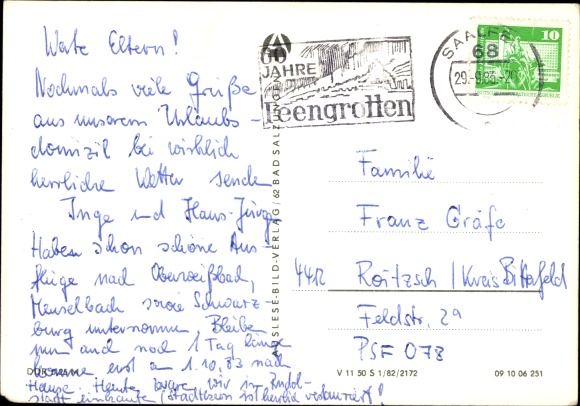 Wate Eltern!
Nochmals viele Grüße
aus unserem Urlaubs-
domizil bei wirklich
herrlichem Wetter senden
Inge und Hans-Jürg
Haben schon schöne Aus-
flüge nach Oberweißbad,
Meuselbach sowie Schwarz-
burg unternomm. Bleiben
nun auch noch 1 Tag länger
komme erst am 1.10.83 nach
Hause. Heute ware wir in Rudol-
stadt einkaufe (Stadtkern ist herrlich restauriert!
60
JAHRE
Feengrotten
SAALFE
68
29.-9.83
10
AUSLESE-BILD-VERLAG / 62 BAD SALZUNGEN
Familie
Franz Gräfe
4412 Roitzsch / Kreis Bitterfeld
Feldstr. 29
PSF 078
V 11 50 S 1/82/2172
09 10 06 251